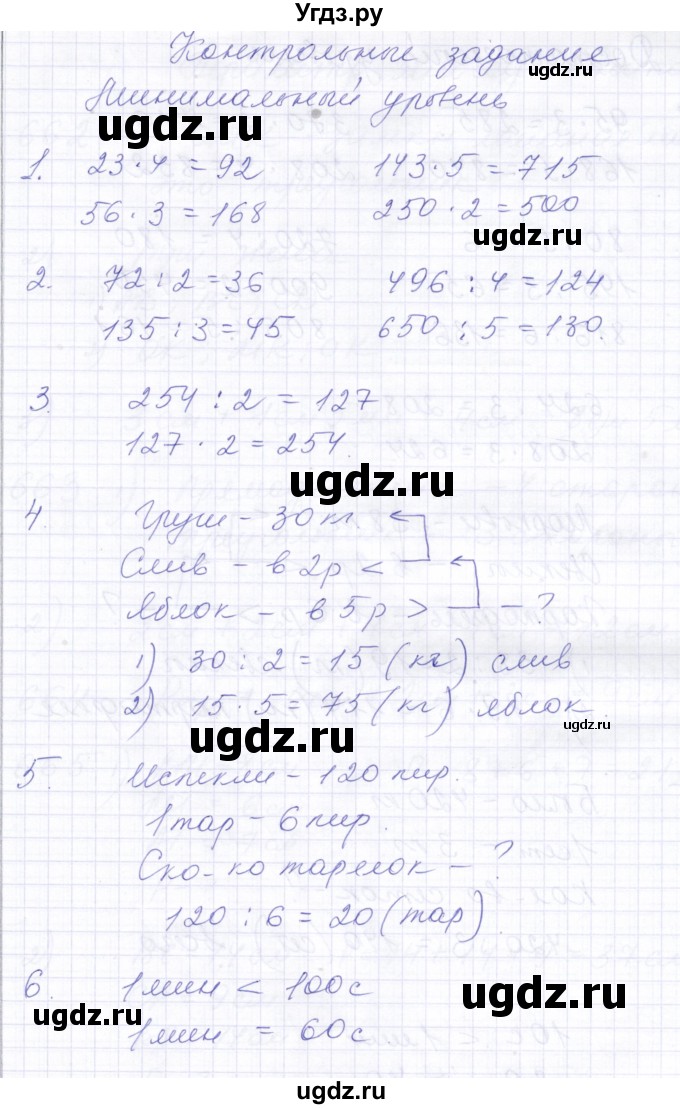 Угдз.ру
Контрольные задание
ugdz.ru
Минимальный уровень
ugdz.ru
1. 23 · 4 = 92 143 · 5 = 715
56 · 3 = 168 250 · 2 = 500
2. 72 : 2 = 36 496 : 4 = 124
135 : 3 = 45 650 : 5 = 130.
3. 254 : 2 = 127
127 · 2 = 254.
ugdz.ru
4. Груш - 30 кг
Слив - в 2р <
Яблок - в 5р > - ?
1) 30 : 2 = 15 (кг) слив
2) 15 · 5 = 75 (кг) яблок
ugdz.ru
ugdz.ru
5. Испекли - 120 пир.
1 тар - 6 пир.
Ско-ко тарелок - ?
120 : 6 = 20 (тар)
6. 1 мин < 100 с
ugdz.ru
ugdz.ru
1 мин = 60 с
ugdz.ru